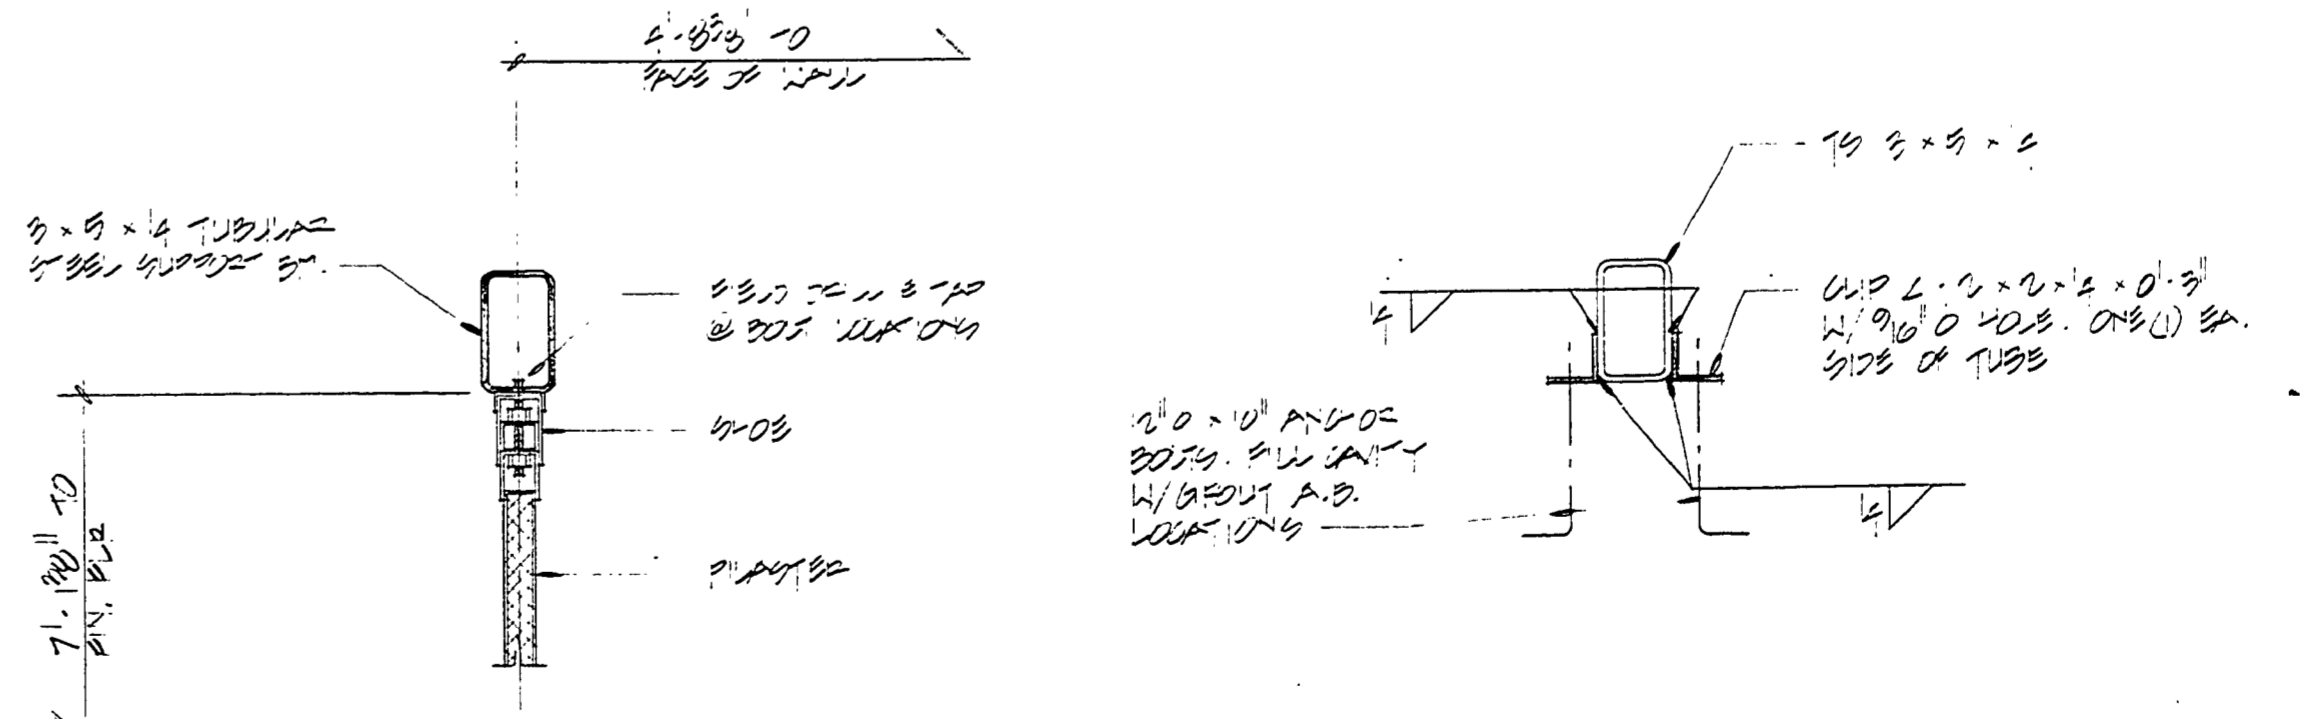 FACE OF WALL
3 x 5 x 1/4 TUBULAR
STEEL SUPPORT BM.
FIELD DRILL & TAP
@ BOLT LOCATIONS
SHOE
PILASTER
7'-1 3/8" TO
FIN. FLR
TS 3 x 5 x 1/4
CLIP L · 2 x 2 x 1/4 x 0'-3"
W/ 9/16" O HOLE. ONE (1) EA.
SIDE OF TUBE
1/4
1/2" O x 10" ANCHOR
BOLTS. FILL CAVITY
W/ GROUT A.B.
LOCATIONS
1/4